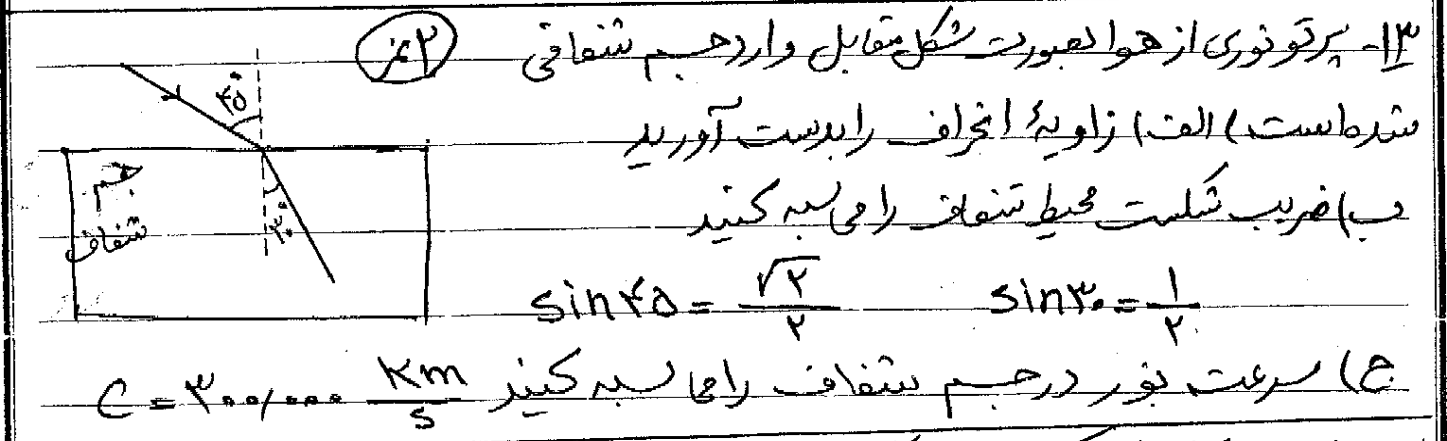 ۱۳- پرتو نوری از هوا بصورت شکل مقابل وارد جسم شفافی (۲نمره)
شده است) الف) زاویهٔ انحراف را بدست آورید
ب) ضریب شکست محیط شفاف را محاسبه کنید
sin۴۵ = √۲/۲ sin۳۰ = ۱/۲
ج) سرعت نور در جسم شفاف را محاسبه کنید C = ۳۰۰/۰۰۰ Km/s
۴۵°
جسم
شفاف
۳۰°